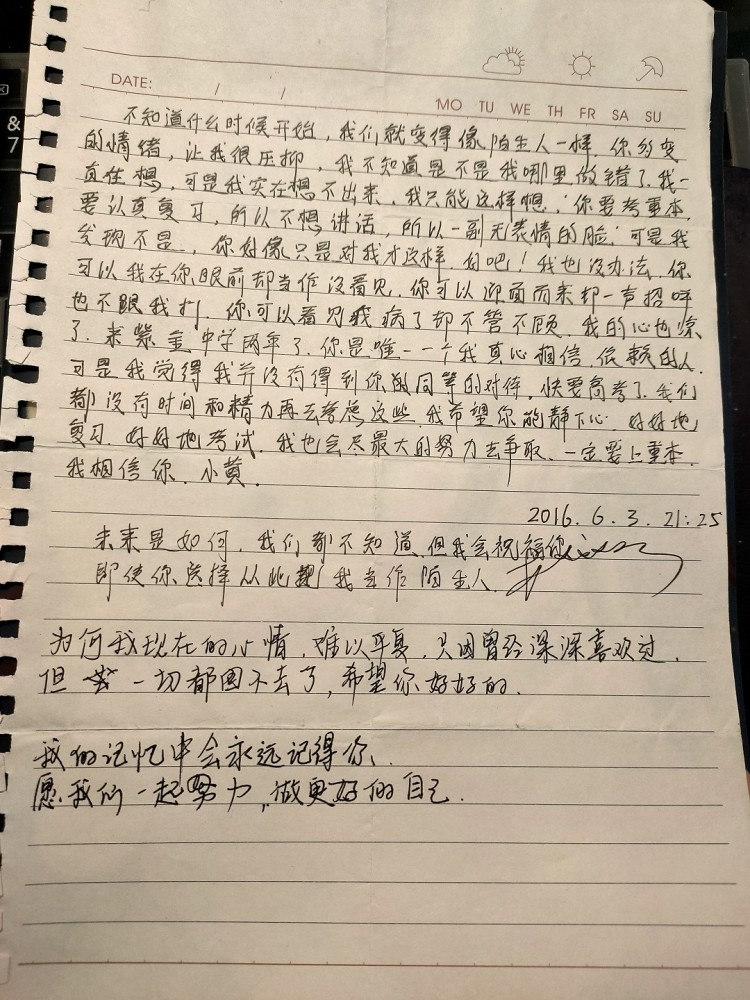 &
7
DATE: / /
MO TU WE TH FR SA SU
不知道什么时候开始，我们就变得像陌生人一样，你多变
的情绪，让我很压抑，我不知道是不是我哪里做错了。我一
直在想，可是我实在想不出来，我只能这样想，"你要考重本，
要认真复习，所以不想讲话，所以一副无表情的脸"可是我
发现不是，你好像只是对我才这样。好吧！我也没办法。你
可以我在你眼前却当作没看见，你可以迎面而来却一声招呼
也不跟我打，你可以看见我病了却不管不顾，我的心也凉
了。来紫金中学两年了，你是唯一一个我真心相信，依赖的人。
可是我觉得我并没有得到你的同等的对待，快要高考了，我们
都没有时间和精力再去考虑这些，我希望你能静下心，好好地
复习，好好地考试，我也会尽最大的努力去争取、一定要上重本，
我相信你，小黄。
2016.6.3.21:25
未来是如何，我们都不知道，但我会祝福你
即使你选择从此把我当作陌生人
为何我现在的心情，难以平复，只因曾经深深喜欢过，
但一切都回不去了，希望你好好的。
我的记忆中会永远记得你、
愿我们一起努力，做更好的自己。